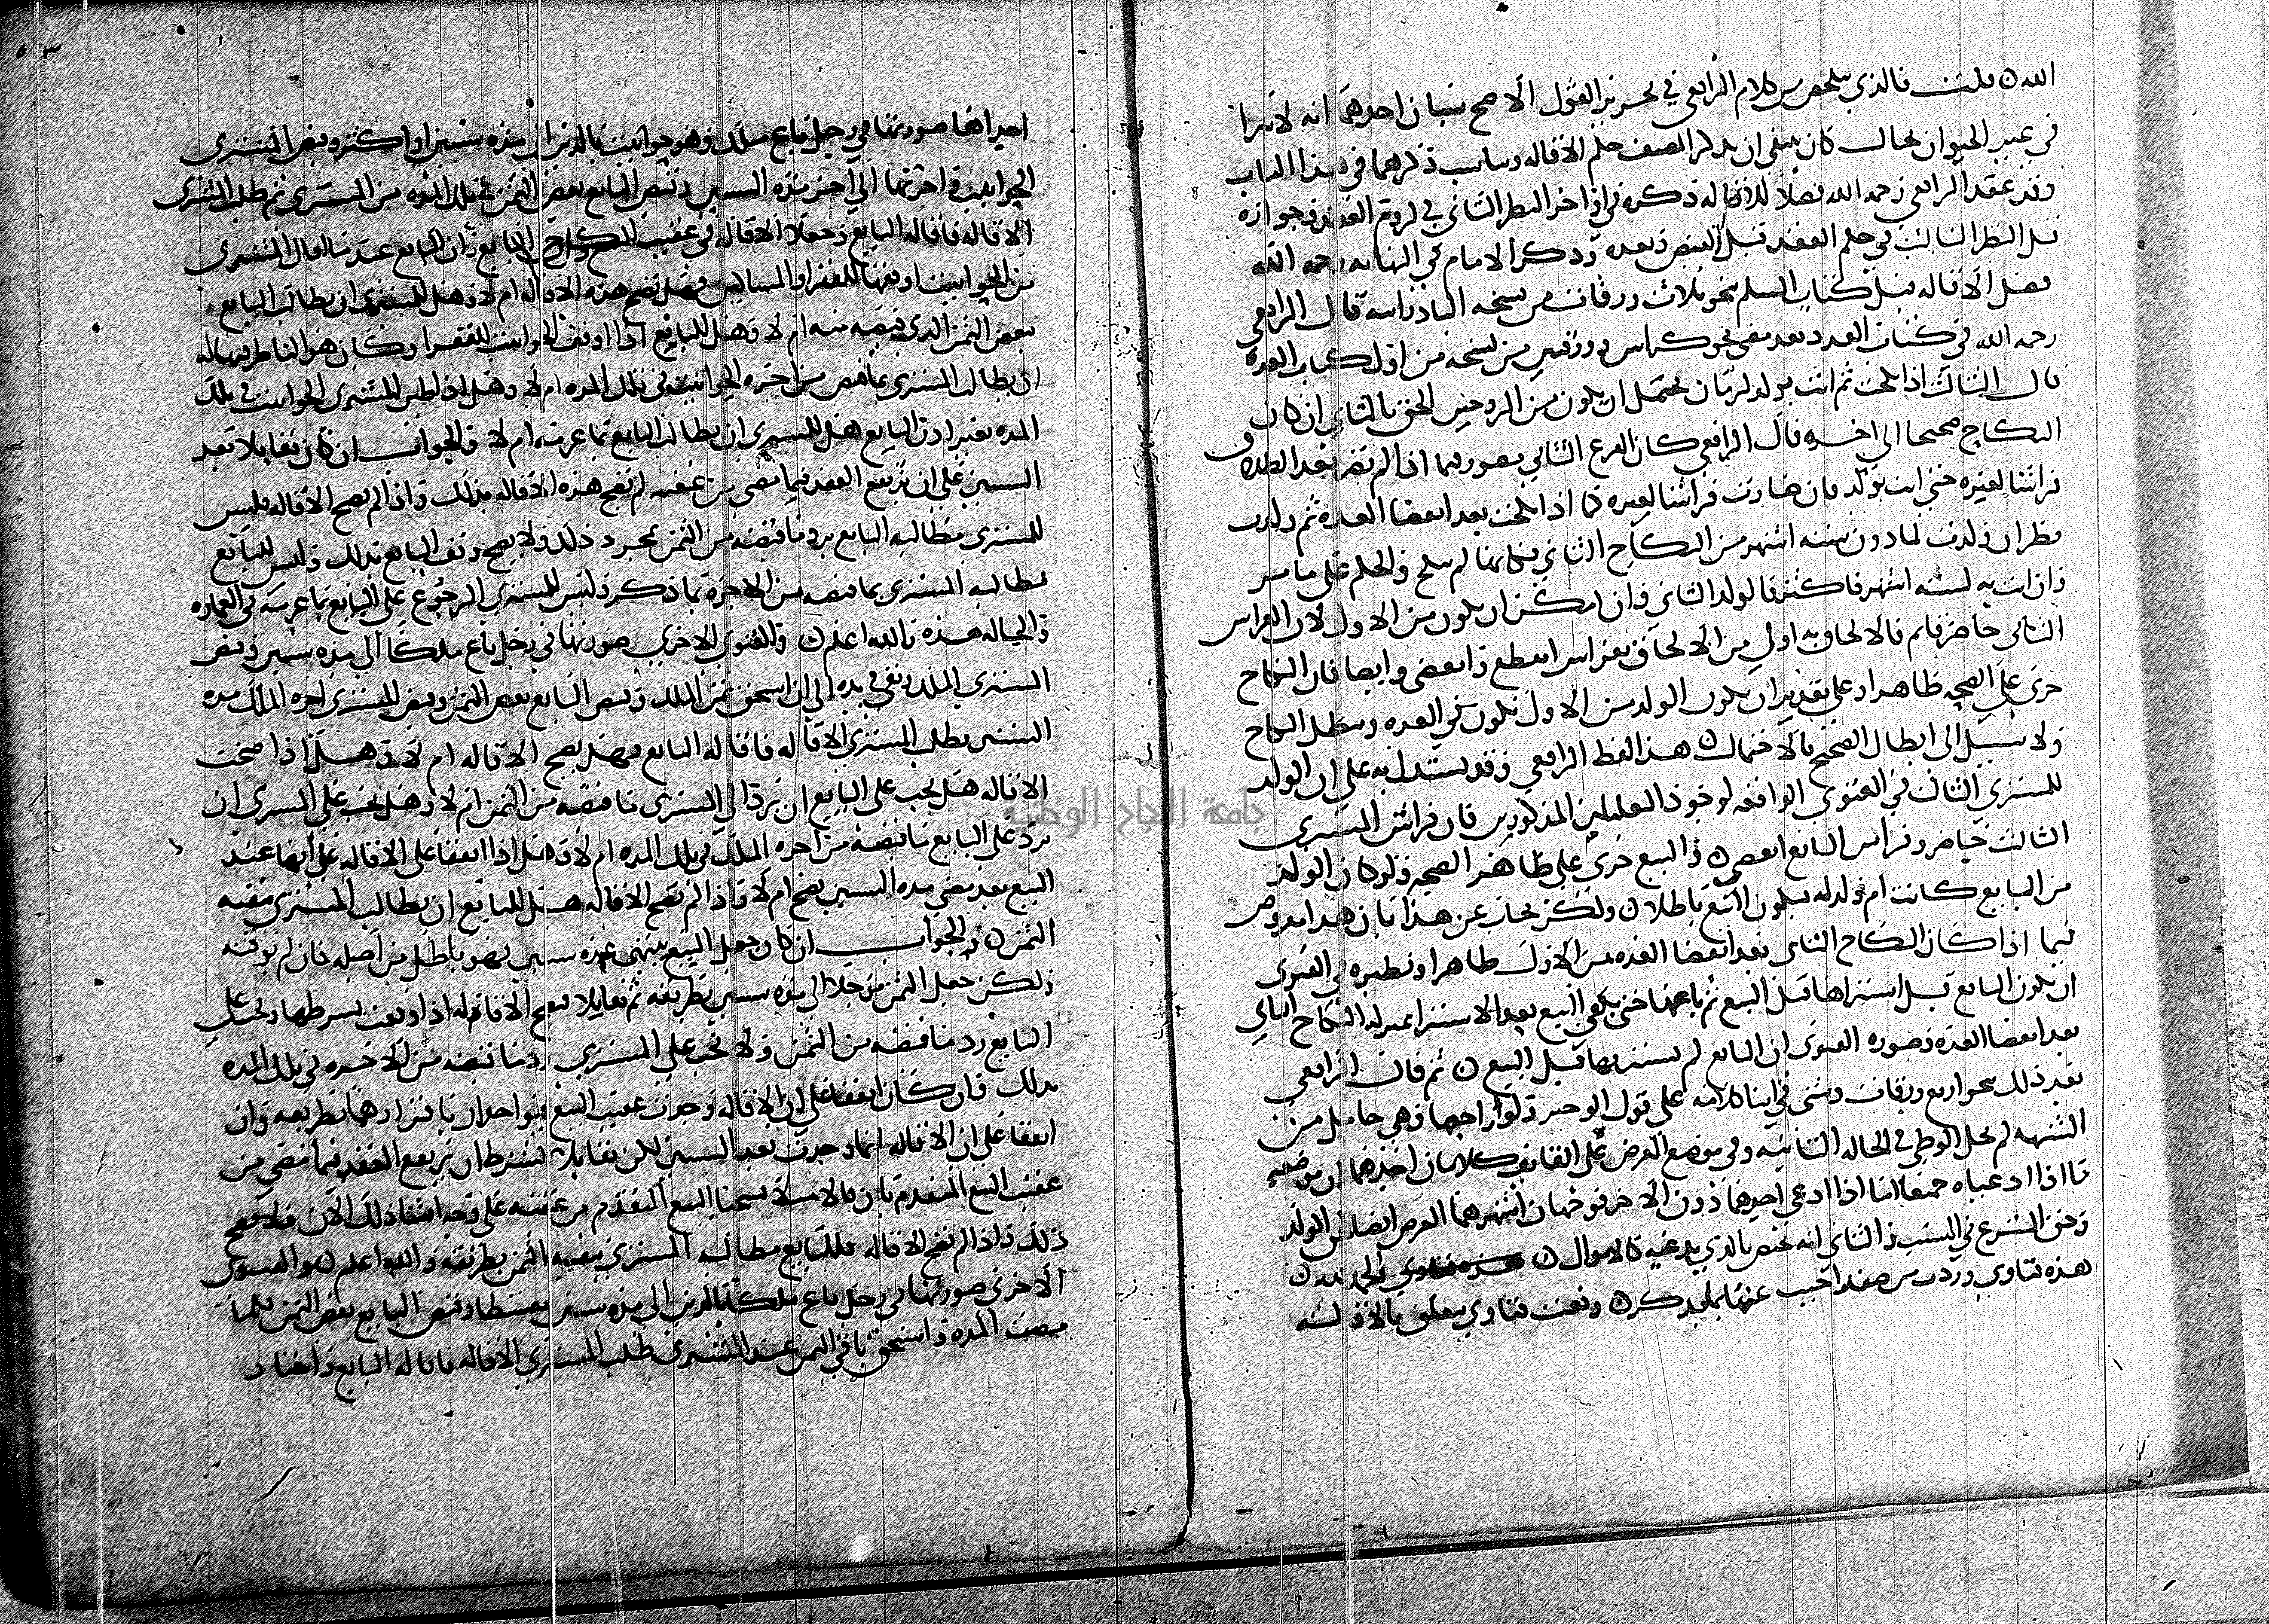 الله ن قلت فالذي يتلخص من كلام الرافعي في تحرير القول الاصح شيان احدهما انه لا يبرا
في عيب الحيوان بحال كان ينبغي ان يذكر المصنف حكم الاقاله ويناسب ذكرهما في هذا الباب
وقد عقد الرافعي رحمه الله فصلا للاقاله ذكره في اواخر النظر الثاني في لزوم العقد وجوازه
قبل النظر الثالث في حكم العقد قبل القبض وبعده وذكر الامام في النهايه رحمه الله
فصل الاقاله قبل كتاب السلم بنحو ثلاث ورقات من نسخه البادرايه قال الرافعي
رحمه الله في كتاب العدد بعد مضي نحو كراس وورقتين من نسخه من اول كتاب العدد
قال الثالث اذا نكحت ثم اتت بولد لزمان يحتمل ان يكون من الزوجين الحق بالثاني ان كان
النكاح صحيحا الى اخره قال الرافعي كان الفرع الثاني يصور فيما اذا لم تصر بعد الطلاق
فراشا لغيره حتى اتت بولد فان صارت فراشا لغيره كما اذا نكحت بعد انقضا العده ثم ولدت
نظر ان ولدت لما دون سته اشهر من النكاح الثاني فكانها لم تنكح والحكم على ما مر
وان اتت به لسته اشهر فاكثر فالولد للثاني وان امكن ان يكون من الاول لان الفراش
الثاني حاضر قايم فالالحاق به اولى من الالحاق بفراش انقطع وانقضى وايضا فان النكاح
جرى على الصحه ظاهرا وعلى تقدير ان يكون الولد من الاول يكون في العده ويبطل النكاح
ولا سبيل الى ابطال الصحيح بالاحتمال ن هذا لفظ الرافعي وقد يستدل به على ان الولد
للمشتري الثالث في الفتوى الواقعه لوجود التعليلين المذكورين فان فراش المشتري
الثالث حاضر وفراش البايع انقضى ن والبيع جرى على ظاهر الصحه ولو كان الولد
من البايع كانت ام ولد له فيكون البيع باطلا ن ولكن يجاب عن هذا بان هذا مفروض
فيما اذا كان النكاح الثاني بعد انقضا العده من الاول ظاهرا ونظيره في الفتوى
ان يكون البايع قبل استبراها قبل البيع ثم باعها حتى يكون البيع بعد الاستبرا بمنزله النكاح الثاني
بعد انقضا العده وصوره الفتوى ان البايع لم يستبريها قبل البيع ن ثم قال الرافعي
بعد ذلك بنحو اربع ورقات وشي في اثنا كلامه على قول الوجيز ولو راجعها وهي حامل من
الشبهه لم يحل الوطي في الحاله الثانيه وفي موضع العرض على القايف كلامان احدهما ان موضعه
ما اذا ادعياه جميعا اما اذا ادعى احدهما دون الاخر فوجهان اشهرهما العرض ايضا لحق الولد
وحق الشرع في النسب والثاني انه يختص بالذي يدعيه كالاموال ن والحمد لله ن
هذه فتاوي وردت من صفد اجيب عنها بما يذكر ن وقعت فتاوي يتعلق بالاقاله
احداها صورتها في رجل باع ملك وهو حوانيت بالدين الى مده سنتين او اكثر وقبض المشتري
الحوانيت واجرتها الى اخر مده السنين وقبض البايع بعض الثمن في تلك المده من المشتري ثم طلب المشتري
الاقاله فاقاله البايع وجعلا الاقاله في عقيب البايع وان البايع عندما اقال المشتري
من الحوانيت اوقفها للفقرا والمساكين فهل تصح هذه الاقاله ام لا وهل للمشتري ان يطالب البايع
ببعض الثمن الذي قبضه منه ام لا وهل للبايع اذا اوقف الحوانيت للفقرا وكان هو الناظر فيها له
ان يطالب المشتري بما قبض من اجره الحوانيت في تلك المده ام لا وهل اذا للمشتري الحوانيت في تلك
المده بغير اذن البايع هل للمشتري ان يطالب البايع بما غرمه ام لا والجواب ان كان تقايلا بعد
السنين على ان يرتفع العقد فيما مضى من عقبه لم تصح هذه الاقاله بذلك واذا لم تصح الاقاله فليس
للمشتري مطالبه البايع برد ما قبضه من الثمن بمجرد ذلك ولا يصح وقف البايع بذلك وليس للبايع
مطالبه المشتري بما قبضه من الاجره بما ذكر وليس للمشتري الرجوع على البايع بما غرمه في العماره
والحاله هذه والله اعلم ن والفتوى الاخرى صورتها في رجل باع ملكا الى مده سنين وقبض
المشتري الملك وبقي في يده الى ان استحق ثمن الملك وقبض البايع بعض الثمن وقبض المشتري اجره الملك مده
السنين فطلب المشتري الاقاله فاقاله البايع فهل تصح الاقاله ام لا وهل اذا صحت
الاقاله هل يجب على البايع ان يرد الى المشتري ما قبضه من الثمن ام لا وهل يجب على المشتري ان
يرد على البايع ما قبضه من اجره الملك في تلك المده ام لا وهل اذا اتفقا على الاقاله على انها عند
البيع بعد مضي مده السنين يصح ام لا واذا لم تصح الاقاله هل للبايع ان يطالب المشتري ببقيه
الثمن ن والجواب ان كان جعل البيع ينتهي عده سنين فهو باطل من اصله فان لم يوقته
ولكن جعل الثمن موجلا الى مده سنين بطريقه ثم تقايلا فتصح الاقاله اذا وقعت بشرطها ويجب على
البايع رد ما قبضه من الثمن ولا يجب على المشتري رد ما قبضه من الاجره في تلك المده
بذلك وان كان اتفقا على ان الاقاله وجدت عقيب البيع بطريقه وان
اتفقا على ان الاقاله انما وجدت بعد السنين لكن تقايلا بشرط ان يرتفع العقد فيما مضى من
عقيب البيع المتقدم من عقبه على وجه ذلك الان فلا يصح
ذلك واذا لم تصح الاقاله فللبايع مطالبه المشتري ببقيه الثمن بطريقه والله اعلم ن والفتوى
الاخرى صورتها في رجل باع ملكه بالدين الى مده سنين مقسطا وقبض البايع بعض الثمن فلما
مضت المده واستحق باقي الثمن عند المشتري طلب المشتري الاقاله فاقاله البايع